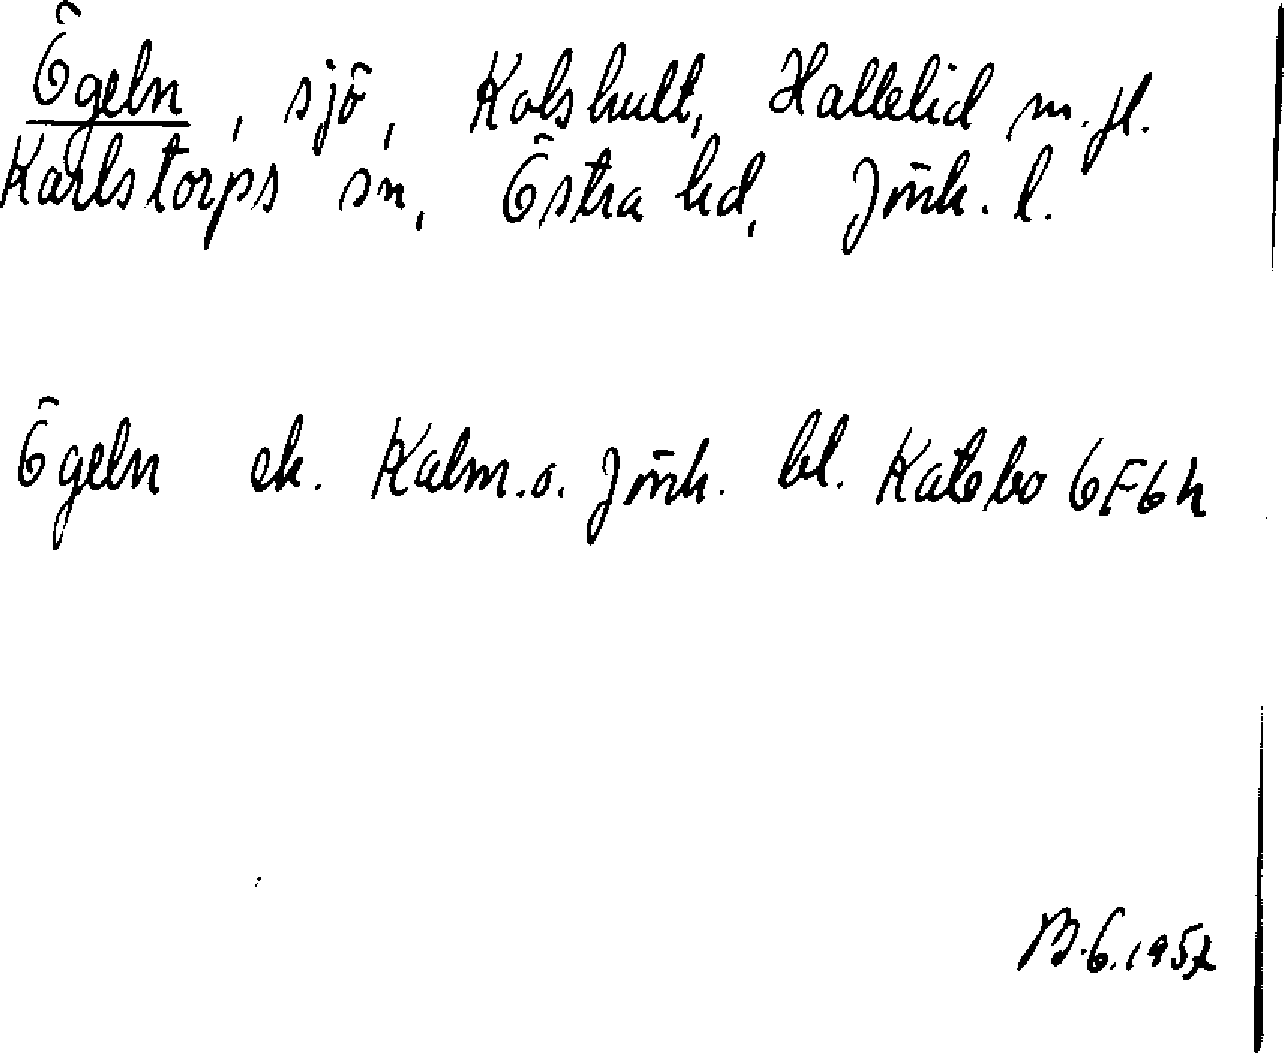 Ögeln, sjö, Kolshult, Hallelid m.fl.
Karlstorps sn, Östra hd, Jönk. l.
Ögeln ek. Kalm. o. Jönk. bl. Kalebo 6F6h
B.G. 1952